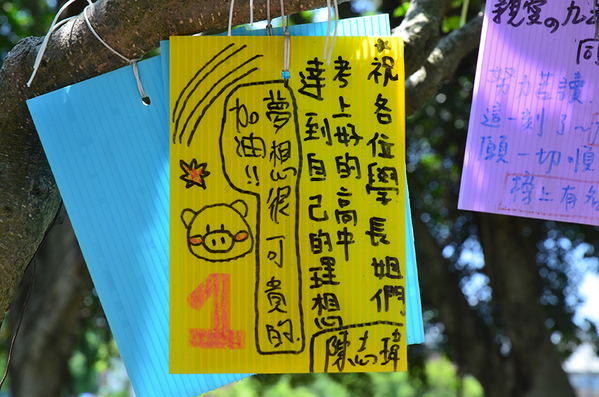 祝各位學長姐們
考上好的高中
達到自己的理想
夢想很可貴的
加油!!
1
陳志瑋
親愛の九
同
努力苦讀
這一刻了
願一切順